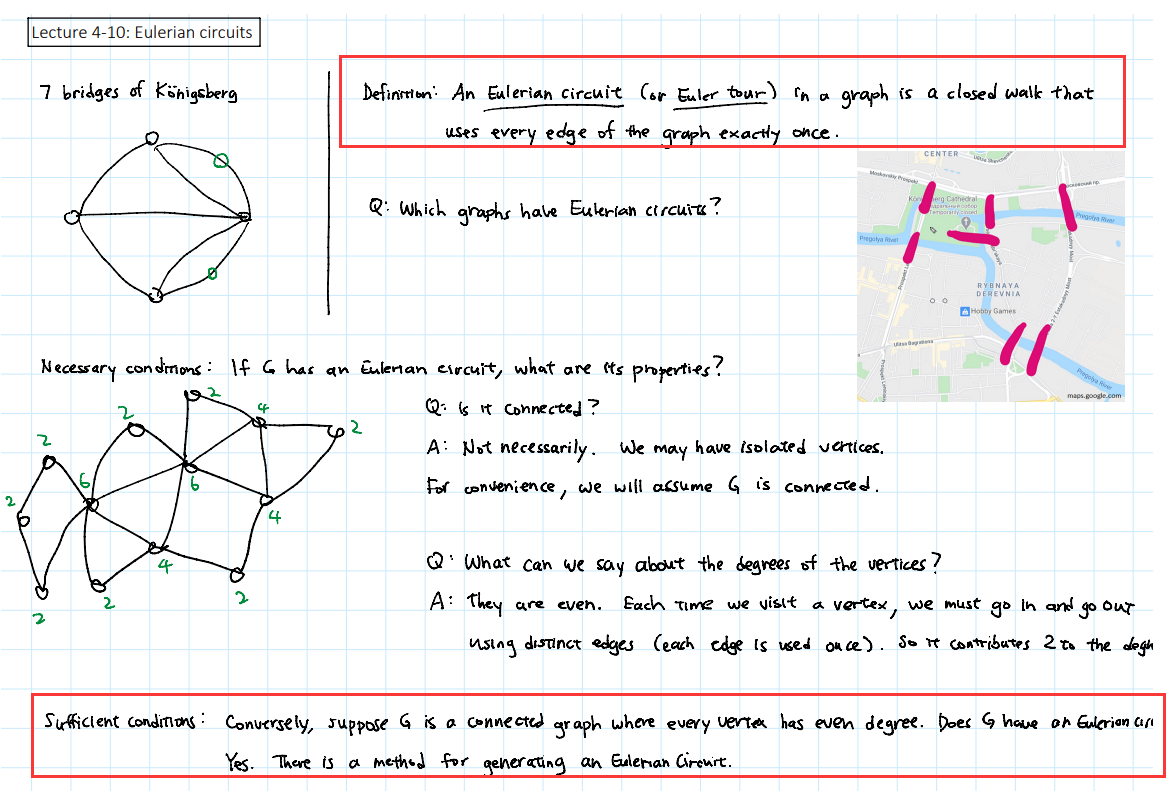 Lecture 4-10: Eulerian circuits
7 bridges of Königsberg
Definition: An Eulerian circuit (or Euler tour) in a graph is a closed walk that
uses every edge of the graph exactly once.
Q: Which graphs have Eulerian circuits?
CENTER
Moskovskiy Prospekt
Pregolya River
Pregolya River
RYBNAYA
DEREVNIA
Hobby Games
Ulitsa Bagrationa
Pregolya River
maps.google.com
Necessary conditions: If G has an Eulerian circuit, what are its properties?
2
4
2
2
2
6
6
2
4
4
2
2
2
Q: Is it connected?
A: Not necessarily. We may have isolated vertices.
For convenience, we will assume G is connected.
Q: What can we say about the degrees of the vertices?
A: They are even. Each time we visit a vertex, we must go in and go out
using distinct edges (each edge is used once). So it contributes 2 to the
Sufficient conditions: Conversely, suppose G is a connected graph where every vertex has even degree. Does G have an Eulerian
Yes. There is a method for generating an Eulerian Circuit.